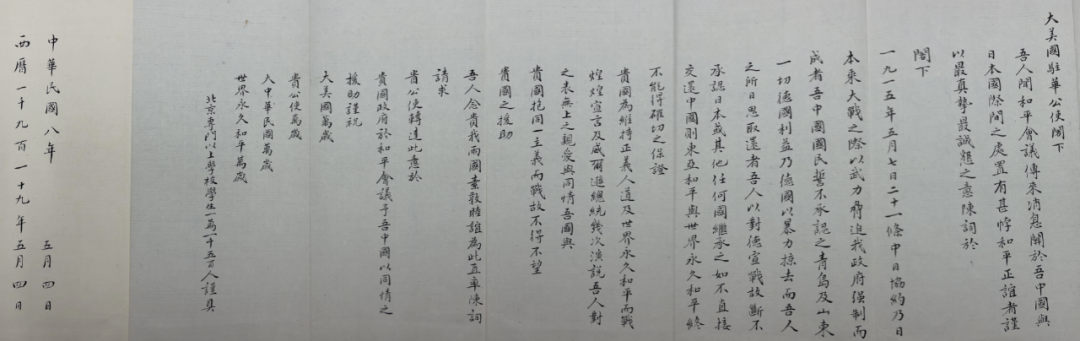 大美國駐華公使閣下
吾人聞和平會議傳來消息關於吾中國與
日本國際間之處置有甚悖和平正誼者謹
以最真摯最誠懇之意陳詞於
閣下
一九一五年五月七日二十一條中日協約乃日
本乘大戰之際以武力脅迫我政府强制而
成者吾中國國民誓不承認之青島及山東
一切德國利益乃德國以暴力掠去而吾人
之所日思取還者吾人以對德宣戰故斷不
承認日本或其他任何國繼承之如不直接
交還中國則東亞和平與世界永久和平終
不能得確切之保證
貴國為維持正義人道及世界永久和平而戰
煌煌宣言及威爾遜總統幾次演說吾人對
之表無上之親愛與同情吾國與
貴國抱同一主義而戰故不得不望
貴國之援助
吾人念貴我兩國素敦睦誼為此直率陳詞
請求
貴公使轉達此意於
貴國政府於和平會議予吾中國以同情之
援助謹祝
大美國萬歲
貴公使萬歲
大中華民國萬歲
世界永久和平萬歲
北京專門以上學校學生一萬一千五百人謹具
中華民國八年 五月四日
西曆一千九百一十九年五月四日